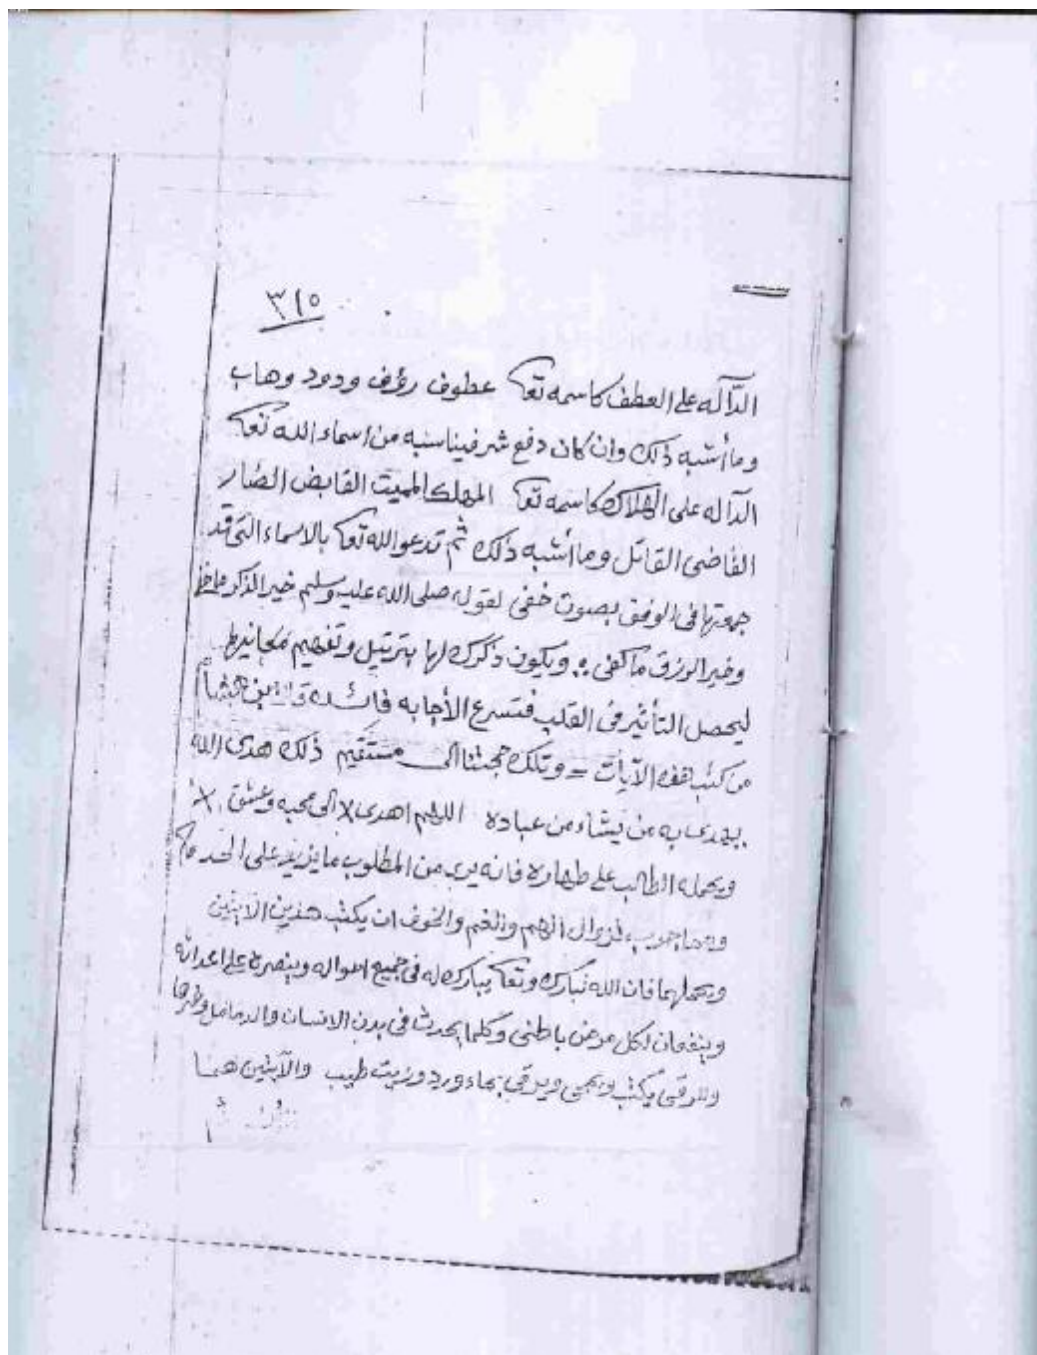 ٣١٥
الدّآله على العطف كاسمه تعا عطوف رؤف ودود وهاب
وما أشبه ذلك وان كان دفع شر فيناسبه من اسماء الله تعا
الدآله على الهلاك كاسمه تعا المهلك المميت القابض الضار
القاضى القاتل وما أشبه ذلك ثم تدعو الله تعا بالاسماء التى قد
جمعتها فى الوفق بصوت خفى لقوله صلى الله عليه وسلم خير الذكر ما خفا
وخير الرزق ما كفى ويكون ذكرك لها بترتيل وتفهيم
ليحصل التأثير فى القلب فتسرع الأجابه فائده ابن
من كتب هذه الآيات = وتلك حجتنا الى مستقيم ذلك هدى الله
يهدى به من يشاء من عباده اللهم اهدى الى محبه وعشق
ويحمله الطالب على طهاره فانه يرى من المطلوب ما يزيد على الحد
ومما جرب لزوال الهم والغم والخوف ان يكتب هذين الآيتين
ويحملهما فان الله تبارك وتعا يبارك له فى جميع امواله وينصره على اعدائه
وينفعان لكل مرض باطنى وكلما يحدث فى بدن الانسان
وللرقى يكتب ويمحى ويرقى بماء ورد وزيت طيب والآيتين هما